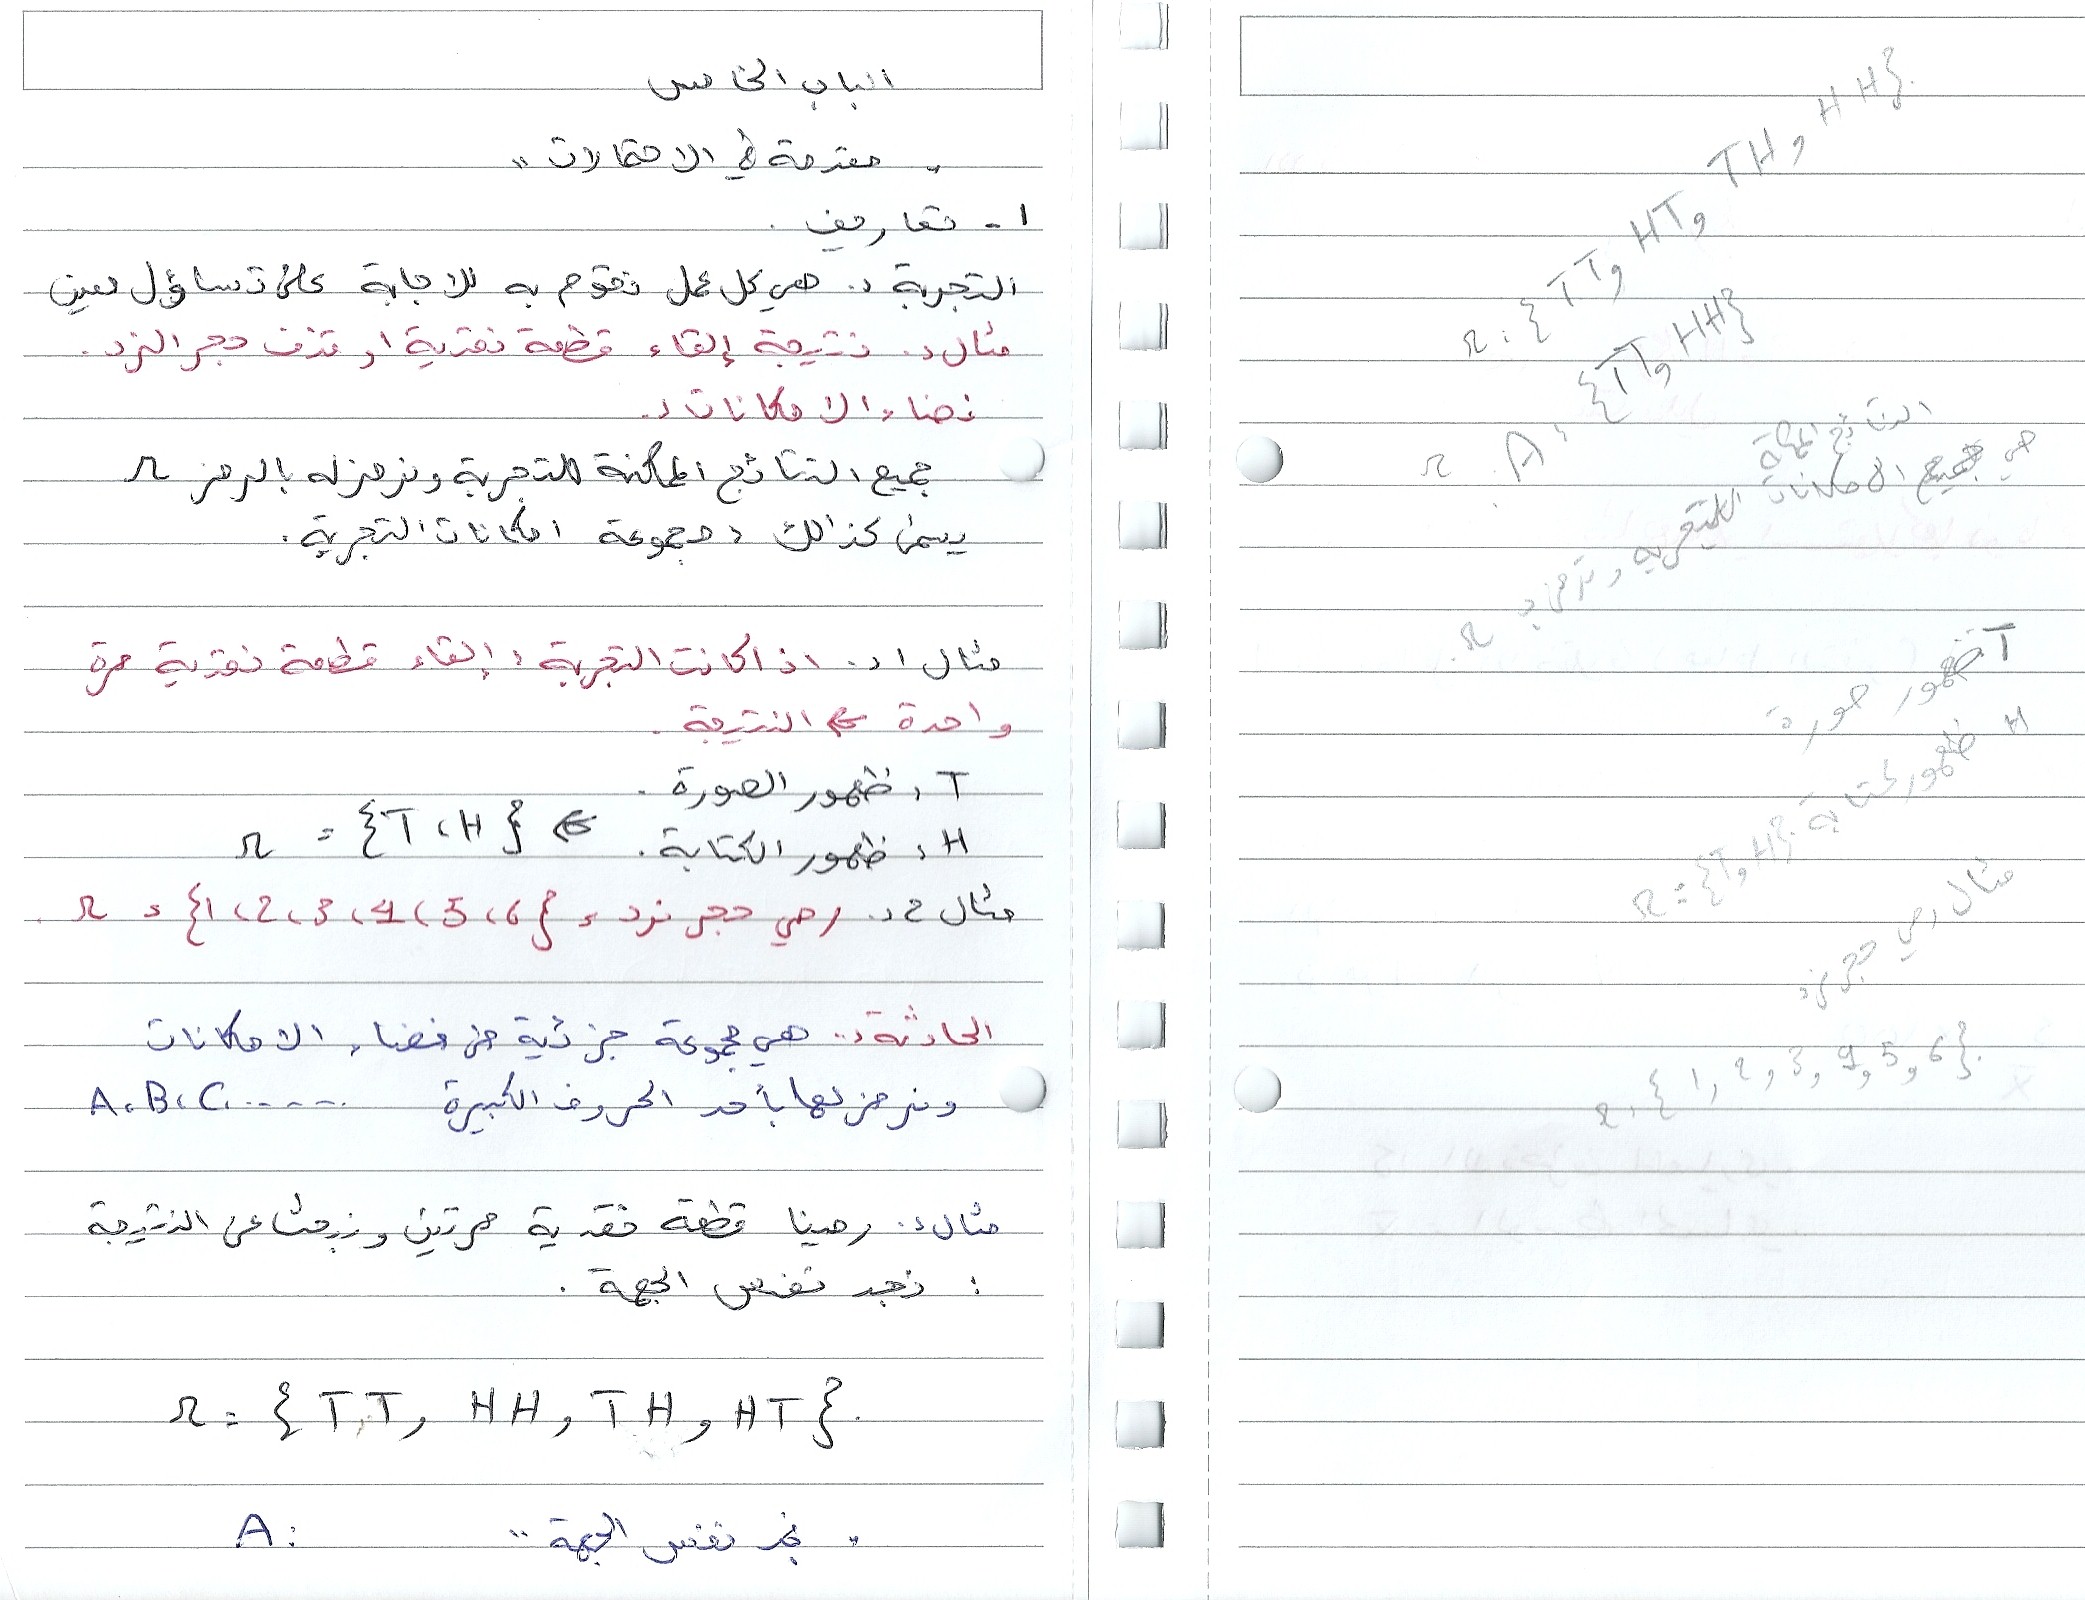 الباب الخامس
" مقدمة في الاحتمالات "
1 - تعاريف .
التجربة : هي كل عمل نقوم به للاجابة على تساؤل معين
مثال : نتيجة إلقاء قطعة نقدية او قذف حجر النرد .
فضاء الامكانات :
جميع النتائج الممكنة للتجربة ونرمز له بالرمز Ω
يسمى كذالك : مجموعة امكانات التجربة .
مثال 1 : اذا كانت التجربة : إلقاء قطعة نقدية مرة
واحدة ⇐ النتيجة .
T : ظهور الصورة .
H : ظهور الكتابة . ⇐ Ω = {T، H}
مثال 2 : رمي حجر نرد : Ω = {1، 2، 3، 4، 5، 6} .
الحادثة : هي مجموعة جزئية من فضاء الامكانات
ونرمز لها بأحد الحروف الكبيرة A، B، C، .....
مثال : رمينا قطعة نقدية مرتين ونبحث عن النتيجة
: نجد نفس الجهة .
Ω = { TT, HH, TH, HT }.
A: " نجد نفس الجهة "
Ω : { TT, HT, TH, HH }.
Ω . A : {TT, HH}
النتائج الممكنة
هي جميع الامكانات للتجربة ونرمز بـ Ω
T ظهور صورة
H ظهور كتابة Ω = {T, H}.
مثال رمي حجر نرد
Ω : { 1, 2, 3, 4, 5, 6 }.